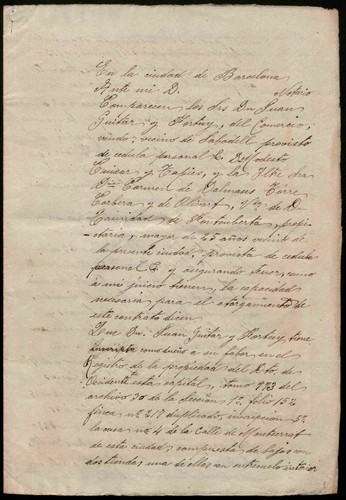 En la ciudad de Barcelona
Ante mi D. Notario
Comparecen los Srs Dn Juan
Guitar y Fortuy, del Comercio,
viudo, vecino de Sabadell provisto
de cedula personal D. Modesto
y Tapies, y la Iltre Sra
Dña Carmen de Dalmases Torre
Cerbera y de Olivart, Vda de D.
de Fontcuberta, propie-
taria, mayor de 25 años vecina de
la presente ciudad, provista de cedula
personal y asegurando tener, como
á mi juicio tienen, la capacidad
necesaria para el otorgamiento de
este contrato dicen
Que Dn. Juan Guitar y Fortuy, tiene
inscripta como dueño a su fabor, en el
Registro de la propiedad del Dto. de
Occidente esta capital, tomo 193 del
archivo 30 de la seccion 1ª folio 152
finca nº 217 duplicado, inscripcion 5ª
la casa nº 4 de la Calle de Montserrat
de esta ciudad, compuesta de bajos con
dos tiendas una de ellas con entresuelo interior